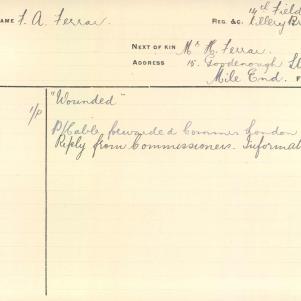 NAME F. A. Ferrar.
REG. &C. 14th Field
tillery Br
NEXT OF KIN Mr H. Ferrar.
ADDRESS 15. Goodenough St
Mile End. F
"Wounded"
P/Cable forwarded Commrs London
Reply from Commissioners. Informat